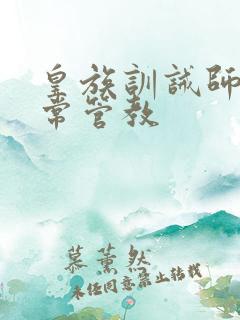 皇族訓誡師
常管教
慕薰然
未经同意禁止转载